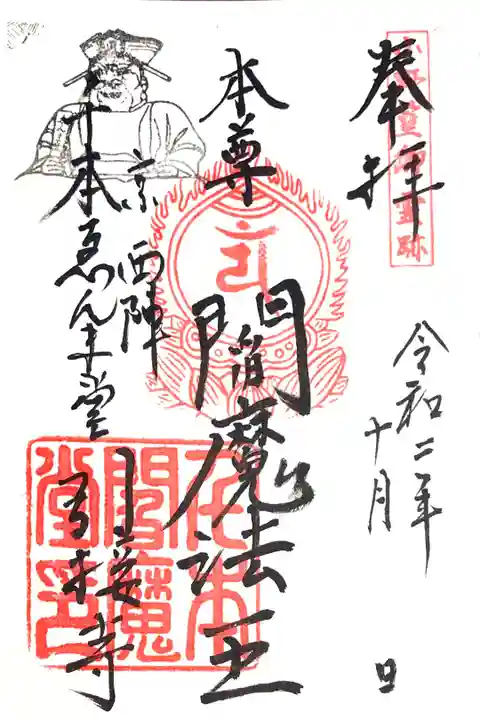 奉拝
令和二年
十月
日
本尊
閻魔法王
京西陣
千本ゑんま堂
引接寺
千本
閻魔
堂印